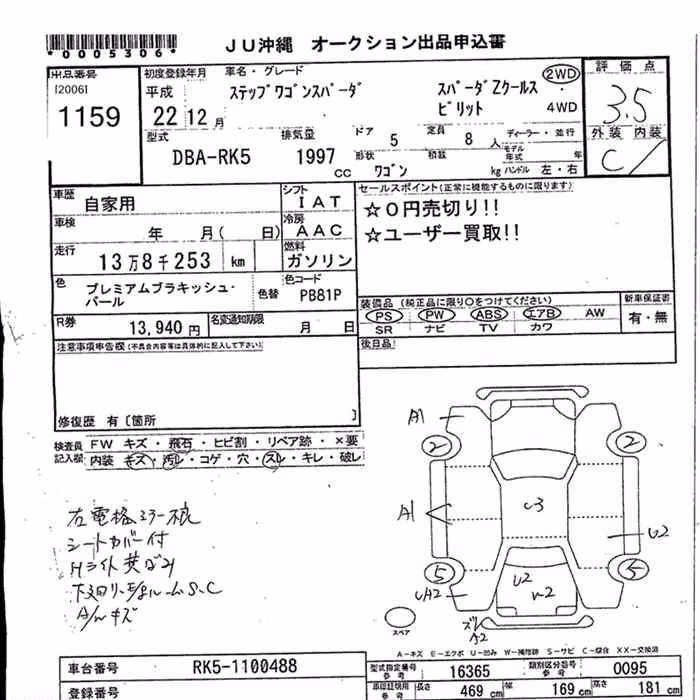 *0005306*
JU沖縄 オークション出品申込書
出品番号
[2006]
1159
初度登録年月
平成
22 12 月
車名・グレード
ステップワゴンスパーダ
スパーダZクールス
ピリット
2WD
4WD
評価点
3.5
外装 内装
C
型式
DBA-RK5
排気量
1997 CC
ドア
5
定員
8 人
ディーラー・並行
モデル年式 年
形状
ワゴン
積載
kg
ハンドル 左・右
車歴
自家用
シフト
IAT
セールスポイント(正常に機能するものに限ります)
☆0円売切り!!
☆ユーザー買取!!
車検
年 月( 日)
冷房
AAC
走行
13万8千253 km
燃料
ガソリン
色
プレミアムブラキッシュ・
パール
色替
色コード
PB81P
装備品 (純正品に限り〇をつけてください)
PS PW ABS エアB AW
SR ナビ TV カワ
新車保証書
有・無
R券
13,940 円
名変通知期限
月 日
後日品
注意事項申告欄(不具合内容等は具体的に記入して下さい)
修復歴 有〔箇所 〕
検査員
記入欄
FW キズ・飛石・ヒビ割・リペア跡・×要
内装 キズ・汚レ・コゲ・穴・スレ・キレ・破レ
左電格ミラー
シートカバー付
Hライト黄ばみ
S.C
A/wキズ
A1
2
2
A1
U3
U2
5
5
U2
U2
スペア
ズレ
A2
A-キズ E-エクボ U-凹み W-補修跡 S-サビ C-腐食 XX-交換済
車台番号
RK5-1100488
型式指定番号
参考
16365
類別区分番号
参考
0095
登録番号
車両証明用
参考
長さ
469 cm
幅
169 cm
高さ
181 cm